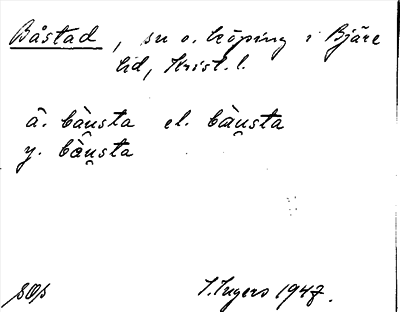 Båstad, sn o. köping i Bjäre
hd, Krist. l.
ä. bàu̯sta el. bàu̯sta
y. bàu̯sta
SOp I. Ingers 1947.